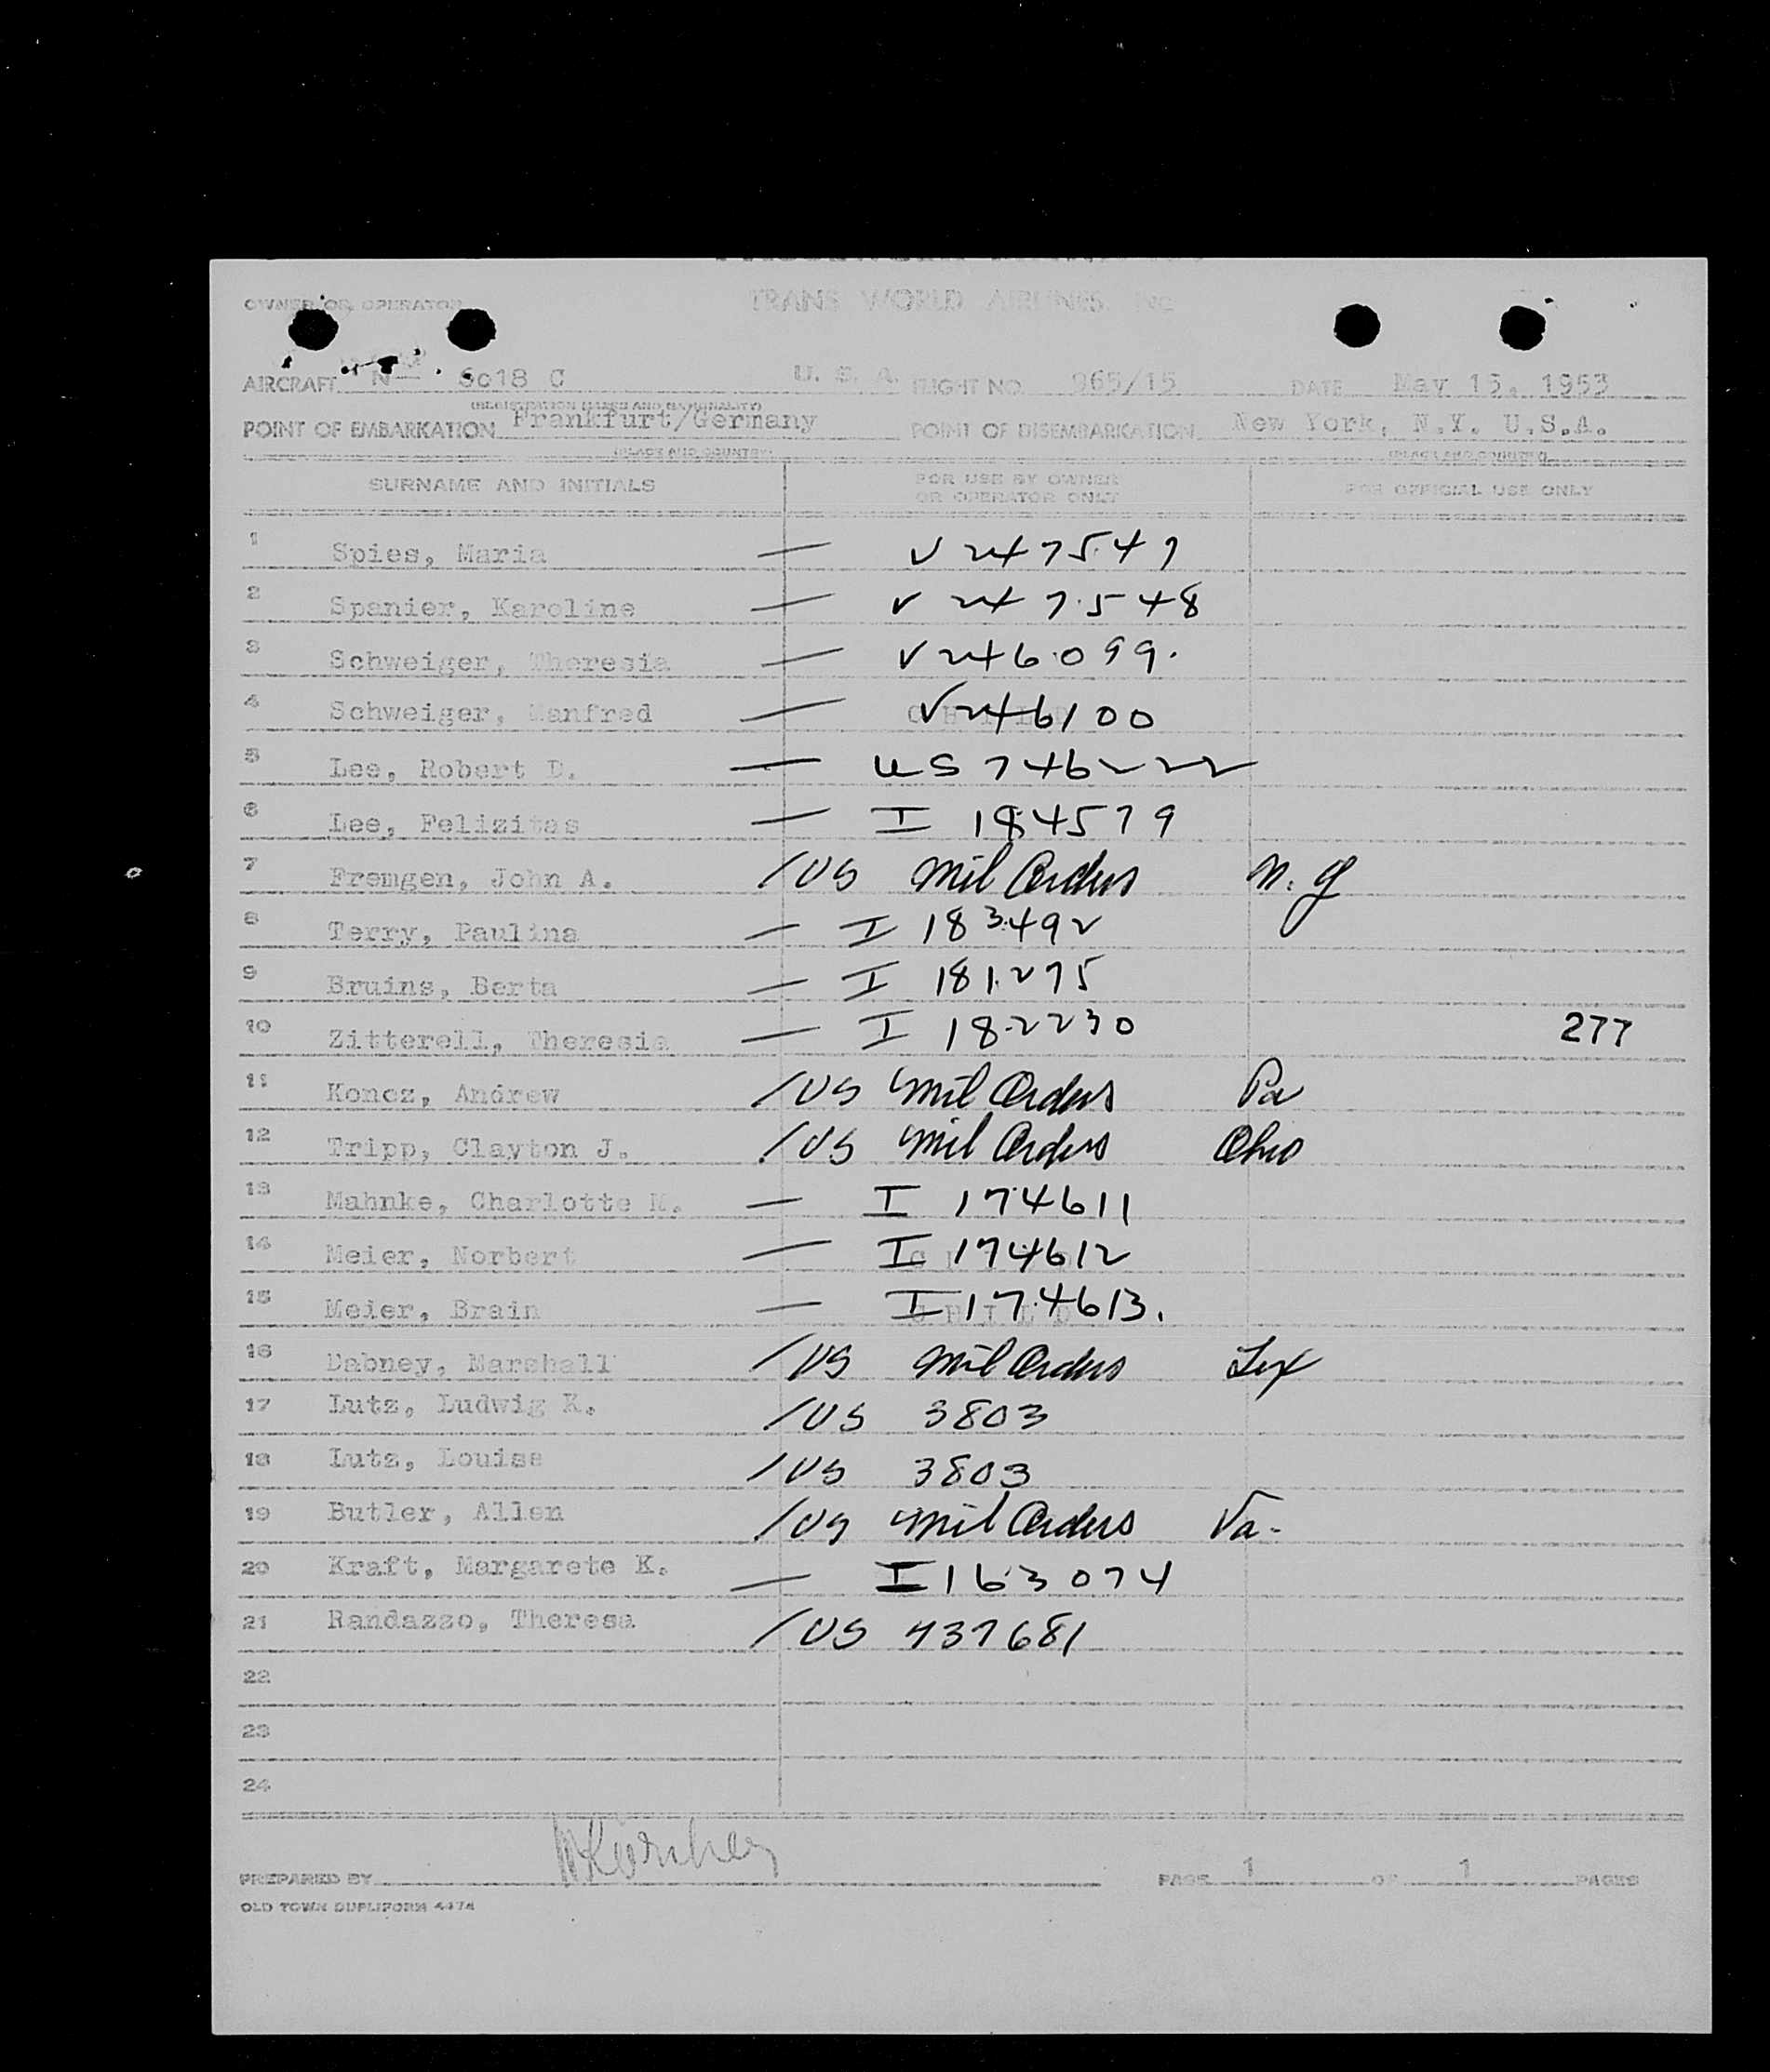 OWNER OR OPERATOR TRANS WORLD AIRLINES, Inc
AIRCRAFT N 6o18 C U. S. A. FLIGHT NO. 965/15 DATE May 15, 1953
(REGISTRATION MARKS AND NATIONALITY)
POINT OF EMBARKATION Frankfurt/Germany POINT OF DISEMBARKATION New York, N.Y. U.S.A.
(PLACE AND COUNTRY) (PLACE AND COUNTRY)
SURNAME AND INITIALS FOR USE BY OWNER OR OPERATOR ONLY FOR OFFICIAL USE ONLY
1 Spies, Maria — V 247547
2 Spanier, Karoline — V 247548
3 Schweiger, Theresia — V 246099.
4 Schweiger, Manfred — CHILD V246100
5 Lee, Robert D. — US 746222
6 Lee, Felizitas — I 184579
7 Fremgen, John A. / US Mil Orders N.Y
8 Terry, Paulina — I 183492
9 Bruins, Berta — I 181275
10 Zitterell, Theresia — I 182230 277
11 Koncz, Andrew / US Mil Orders Pa
12 Tripp, Clayton J. / US Mil Orders Ohio
13 Mahnke, Charlotte M. — I 174611
14 Meier, Norbert — I 174612
15 Meier, Brain — CHILD I 174613.
16 Dabney, Marshall / US Mil Orders Tex
17 Lutz, Ludwig K. / US 3803
18 Lutz, Louise / US 3803
19 Butler, Allen / US Mil Orders Va.
20 Kraft, Margarete K. — I 163074
21 Randazzo, Theresa / US 737681
22
23
24
PREPARED BY PAGE 1 OF 1 PAGES
OLD TOWN DUPLIFORM 4474